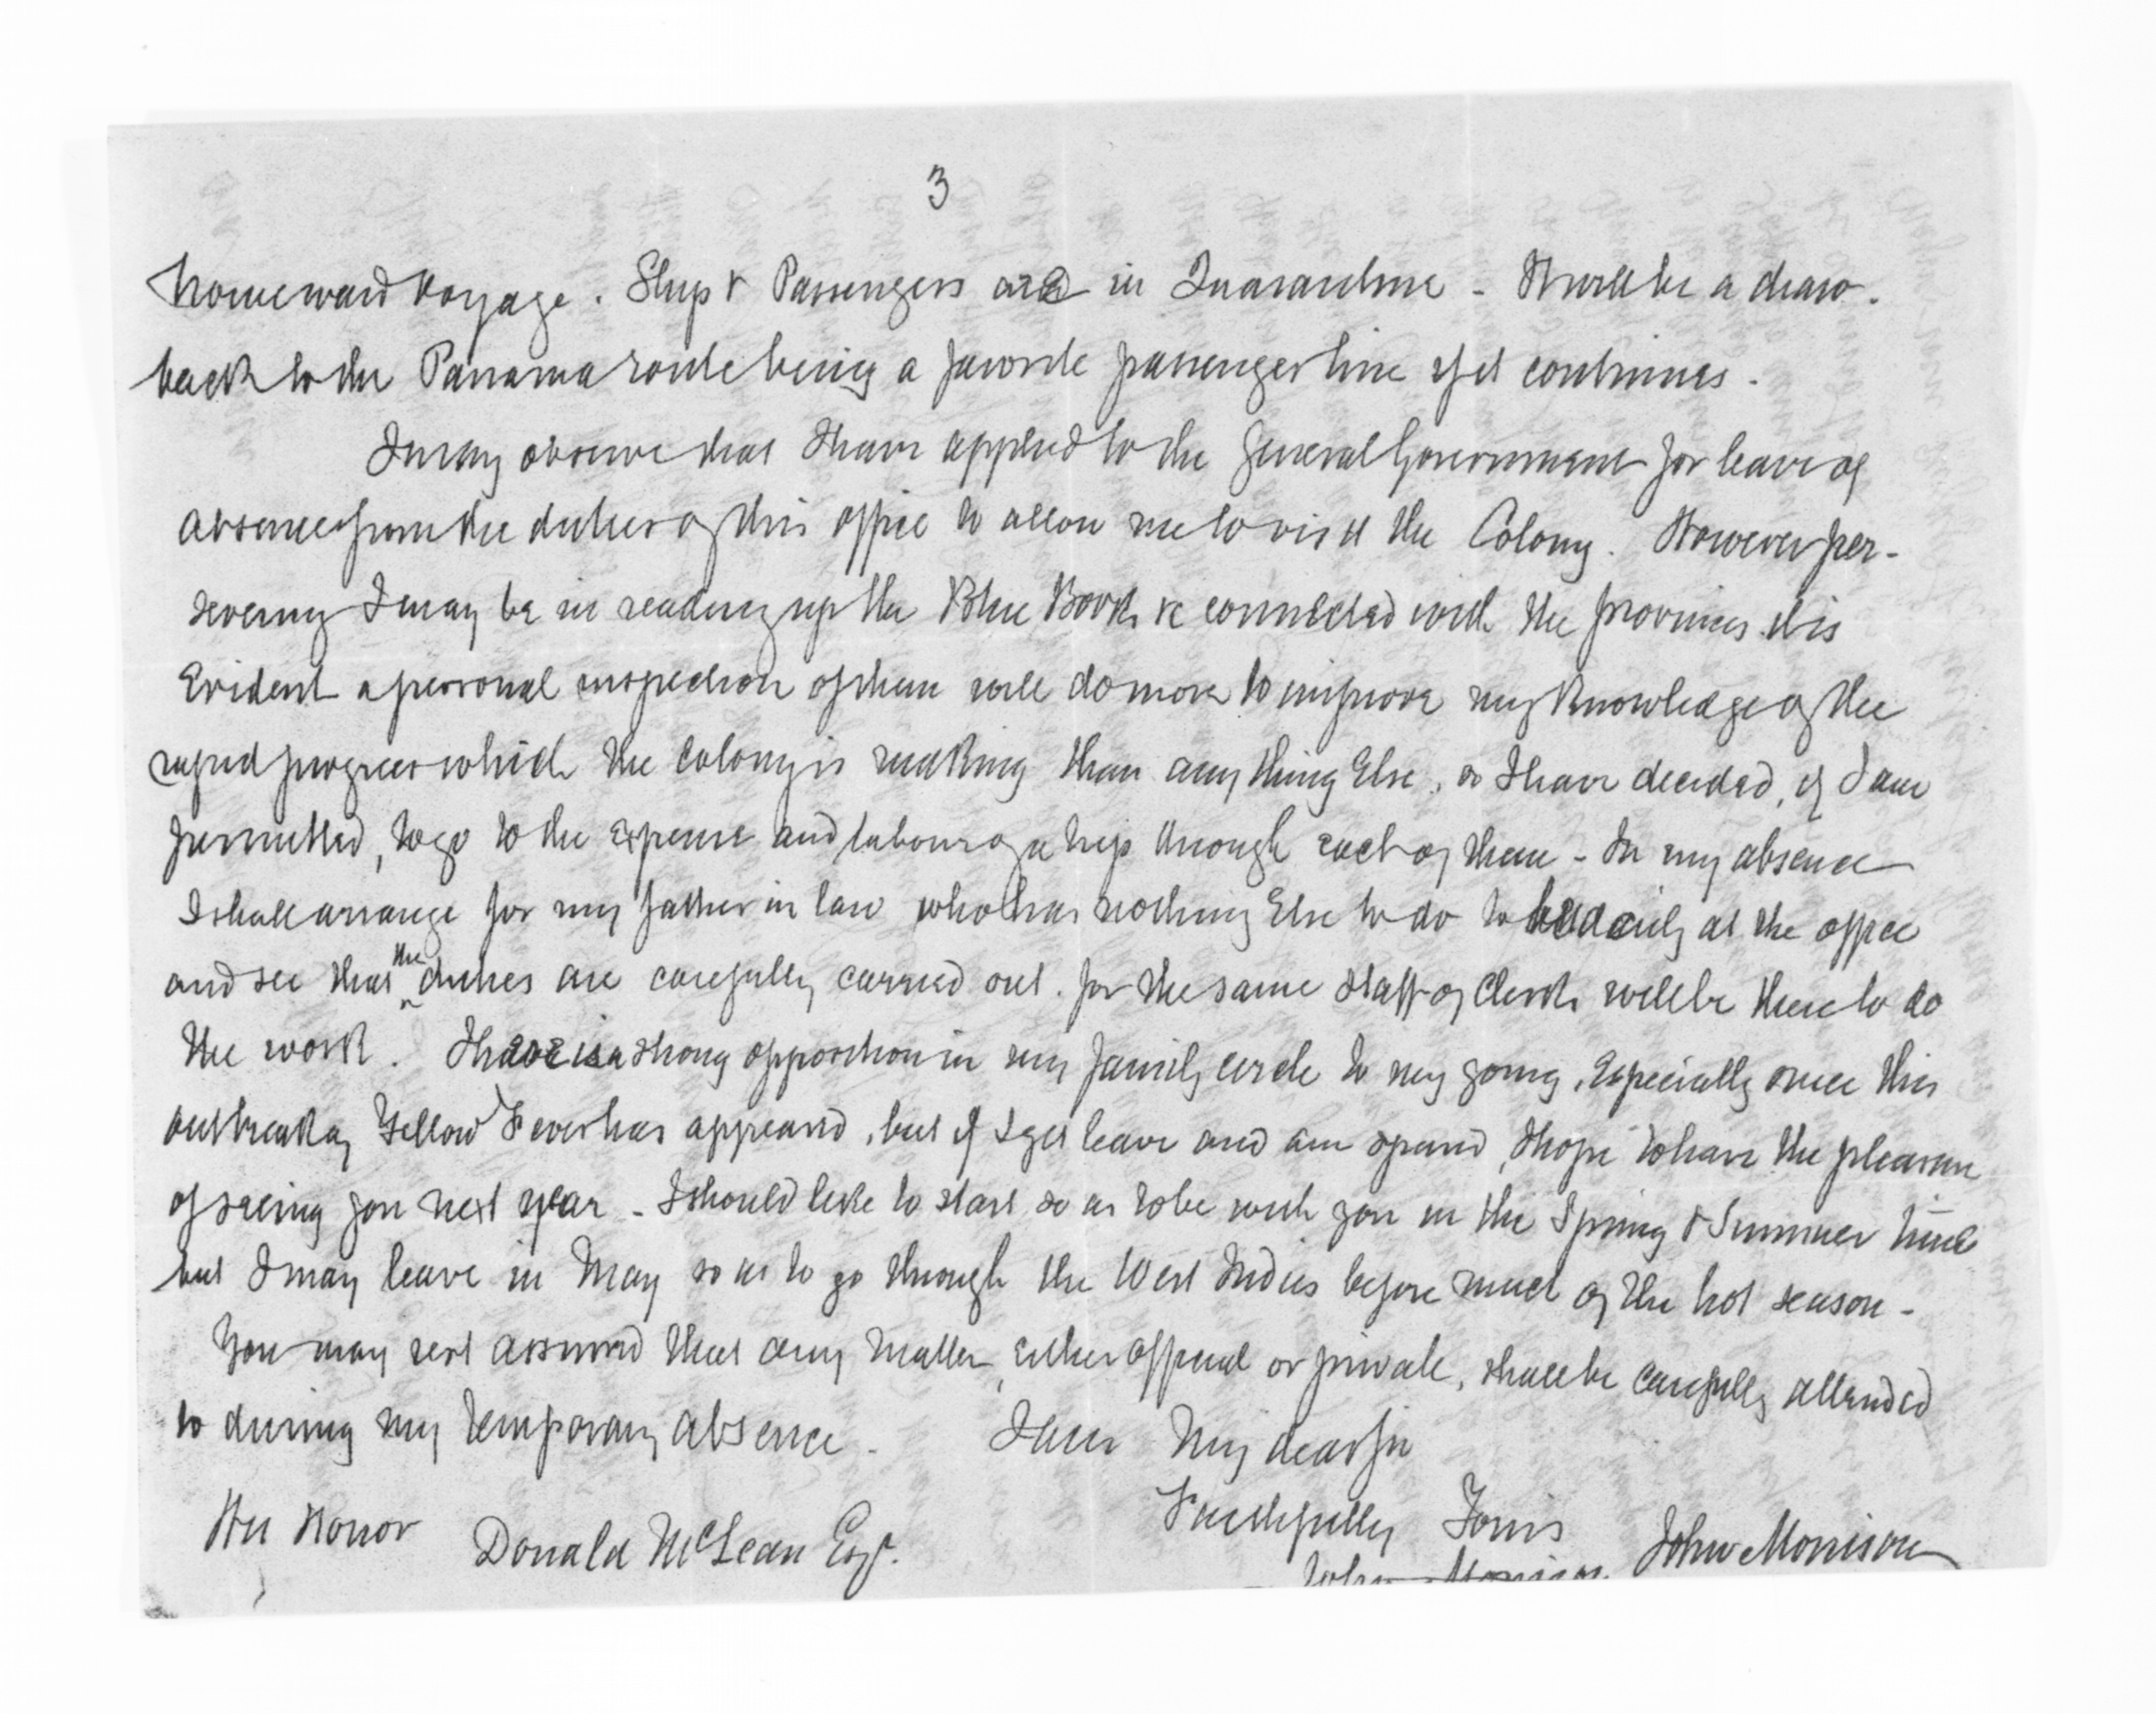 3
homeward voyage. Ship & Passengers are in Quarantine - It will be a draw-
back to the Panama route being a favorite passenger line if it continues.
I may observe that I have applied to the General Government for leave of
absence from the duties of this office to allow me to visit the Colony. However per-
severing I may be in reading up the Blue Books &c connected with the provinces it is
Evident a personal inspection of them will do more to improve my knowledge of the
rapid progress which the Colony is making than any thing Else, so I have decided, if I am
permitted, to go to the Expense and labour of a trip through each of them - In my absence
I shall arrange for my father in law who has nothing Else to do to be daily at the office
and see that the duties are carefully carried out. for the same Staff of Clerks will be there to do
the work. There is a strong opposition in my family circle to my going, Especially since this
outbreak of Yellow Fever has appeared, but if I get leave and am spared, I hope to have the pleasure
of seeing you next year - I should like to start so as to be with you in the Spring & Summer time
but I may leave in May so as to go through the West Indies before much of the hot season -
You may rest assured that any matter, either official or private, shall be carefully attended
to during my temporary absence. I am My dear Sir
Faithfully Yours
His Honor Donald McLean Esqr. John Morrison
John Morrison